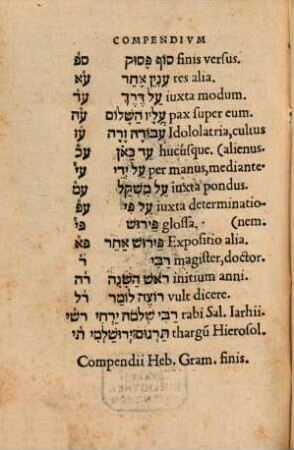 COMPENDIVM
סֹפ סוֹף פָּסוּק finis versus.
עֹא עִנְיָן אַחֵר res alia.
עֹד עַל דֶּרֶךְ iuxta modum.
עֹה עָלָיו הַשָּׁלוֹם pax super eum.
עֹז עֲבוֹדָה זָרָה Idololatria, cultus
עֹכ עַד כָּאן hucúsque. (alienus.
עֹי עַל יְדֵי per manus, mediante
עֹמ עַל מִשְׁקַל iuxta pondus.
עֹפ עַל פִּי iuxta determinatio-
פֹי פֵּירוּשׁ glossa. (nem.
פֹא פֵּירוּשׁ אַחֵר Expositio alia.
רֹ רַבִּי magister, doctor.
רֹה רֹאשׁ הַשָּׁנָה initium anni.
רֹל רוֹצֶה לוֹמַר vult dicere.
רֹשִׁי רַבִּי שְׁלֹמֹה יַרְחִי rabi Sal. Iarhii.
תֹי תַּרְגּוּם יְרוּשַׁלְמִי thargū Hierosol.
Compendii Heb. Gram. finis.